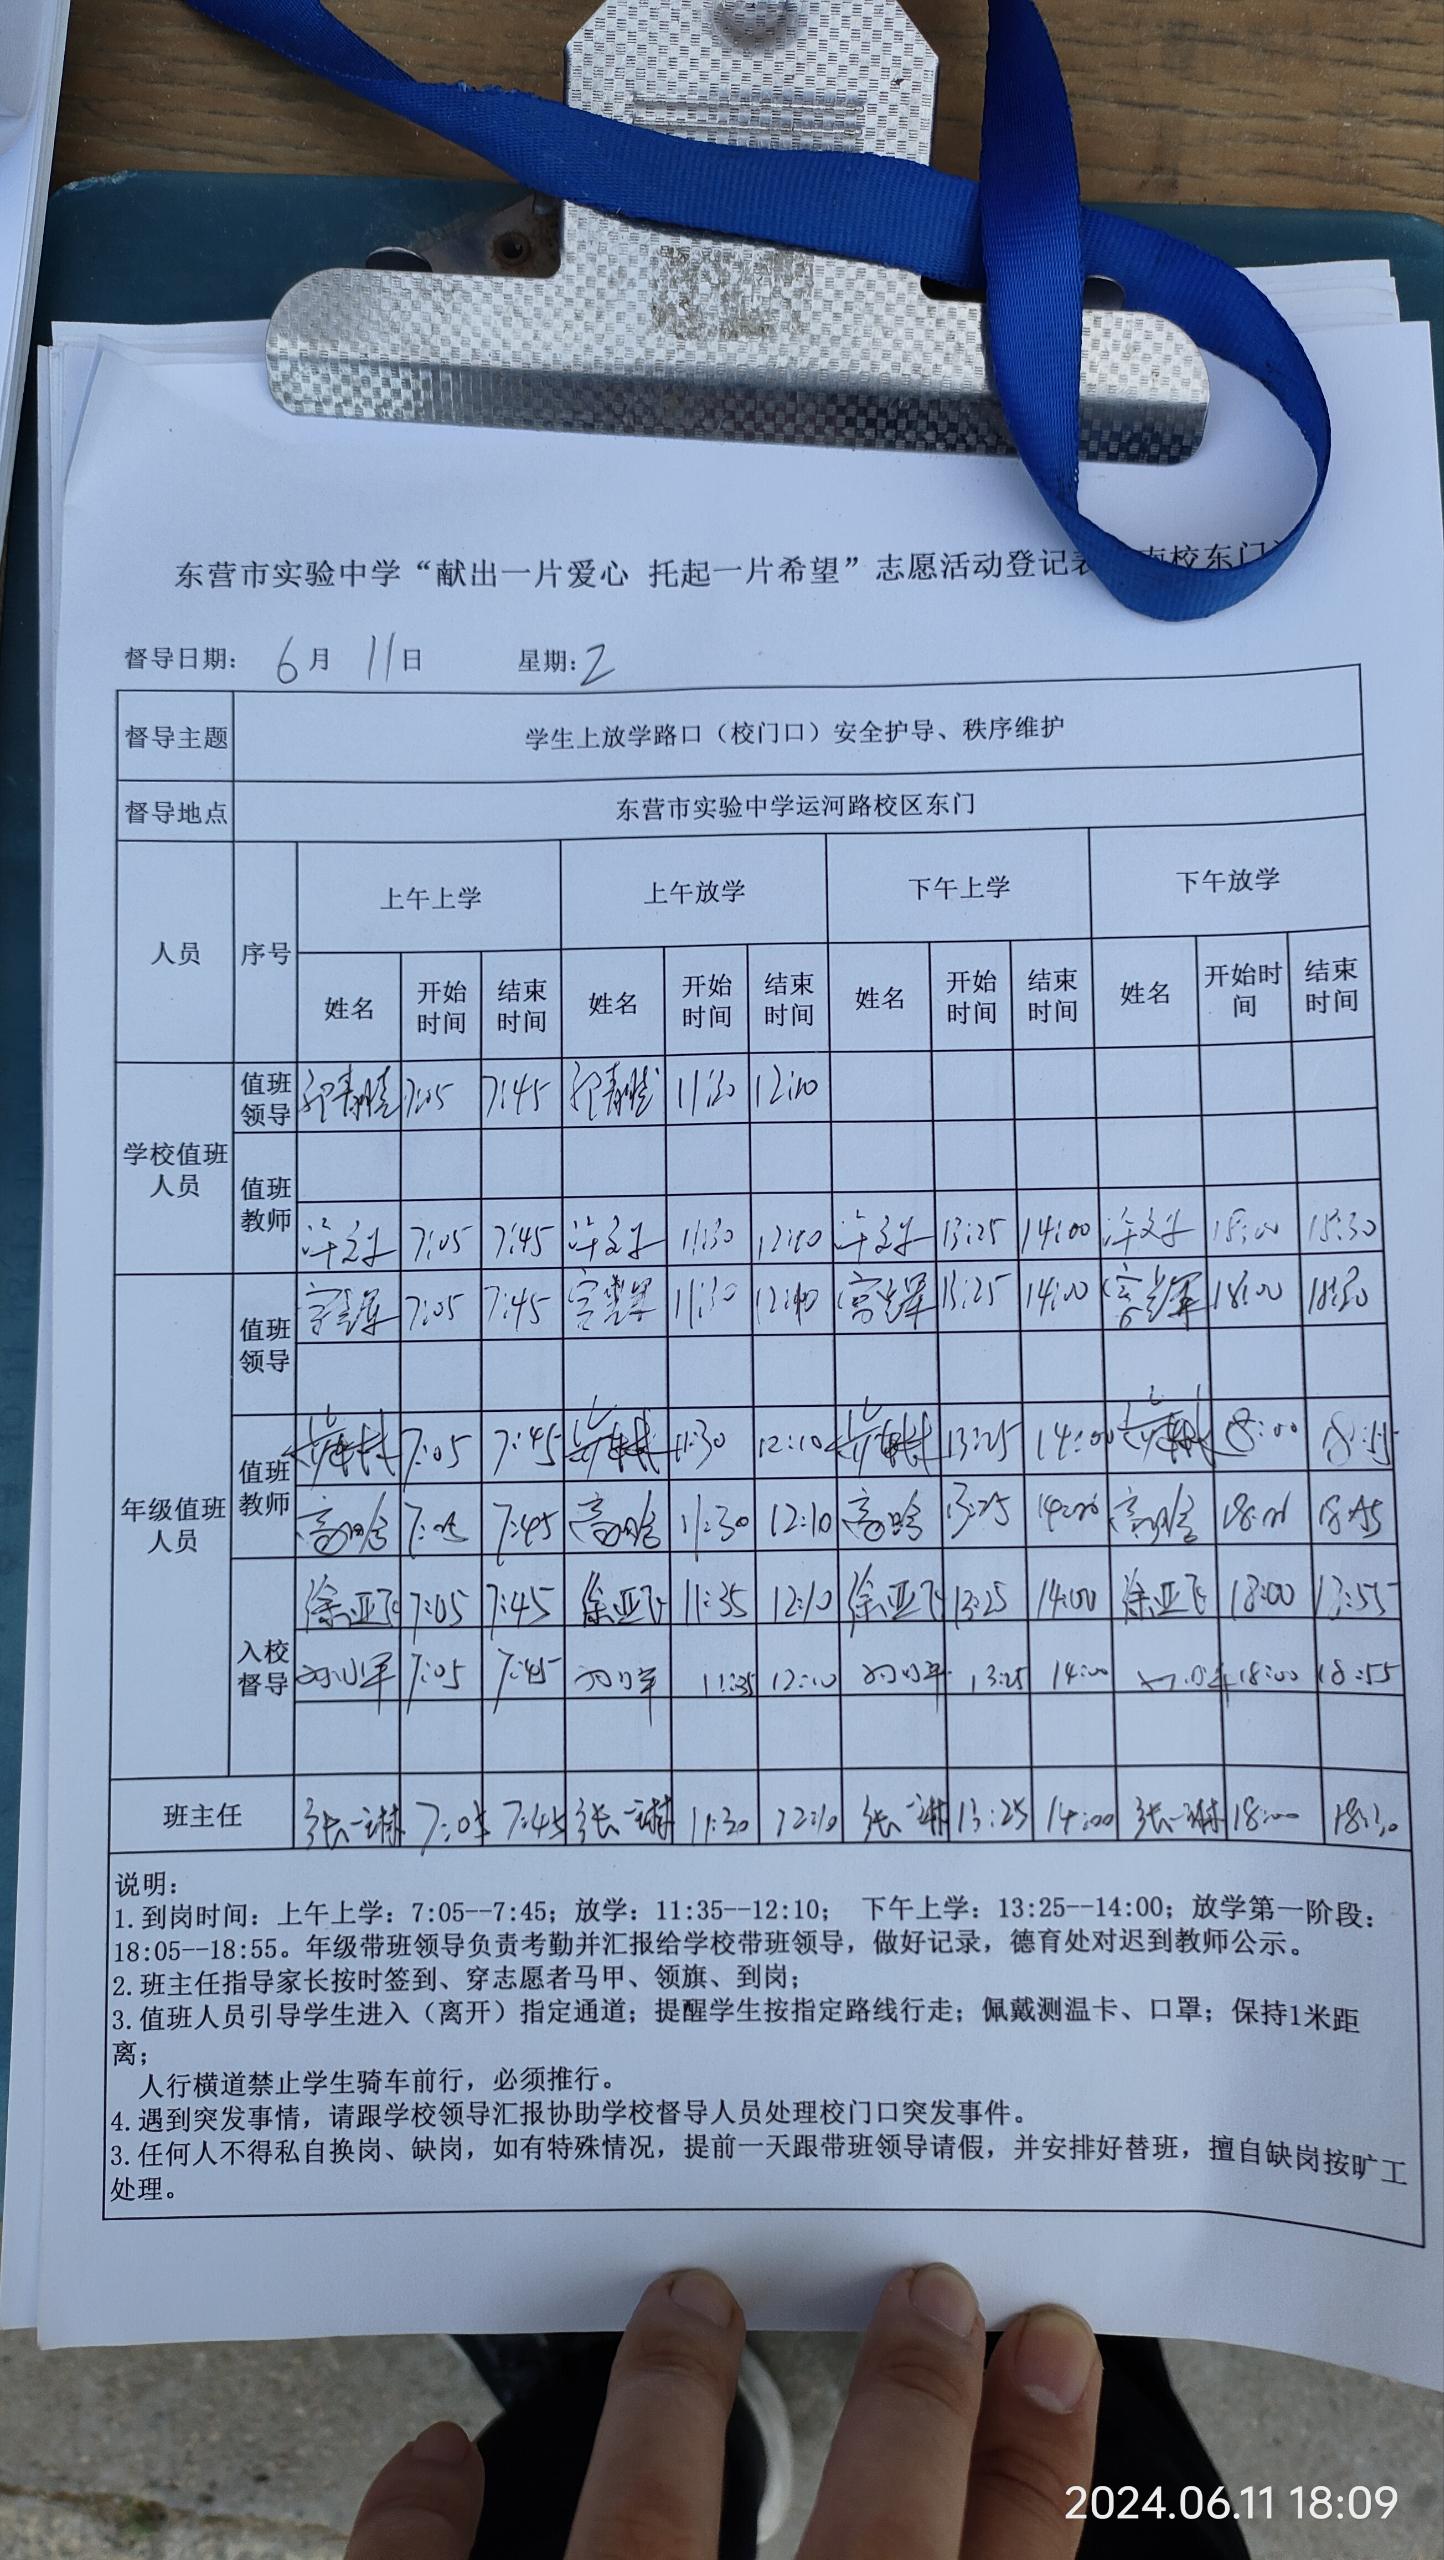 东营市实验中学“献出一片爱心 托起一片希望”志愿活动登记表 南校东门
督导日期： 6月 11日 星期：2
督导主题 学生上放学路口（校门口）安全护导、秩序维护
督导地点 东营市实验中学运河路校区东门
人员 序号 上午上学 上午放学 下午上学 下午放学
姓名 开始时间 结束时间 姓名 开始时间 结束时间 姓名 开始时间 结束时间 姓名 开始时间 结束时间
学校值班人员
值班领导 7:05 7:45 11:30 12:10
值班教师 7:05 7:45 11:30 12:10 13:25 14:00 18:00 18:30
年级值班人员
值班领导 7:05 7:45 11:30 12:10 13:25 14:00 18:00 18:30
值班教师 7:05 7:45 11:30 12:10 13:25 14:00 18:00 18:55
高晗 7:05 7:45 高晗 11:30 12:10 高晗 13:25 14:00 高晗 18:00 18:55
入校督导
徐亚飞 7:05 7:45 徐亚飞 11:35 12:10 徐亚飞 13:25 14:00 徐亚飞 18:00 18:55
刘小军 7:05 7:45 刘小军 11:35 12:10 刘小军 13:25 14:00 刘小军 18:00 18:55
班主任 张一琳 7:05 7:45 张一琳 11:30 12:10 张一琳 13:25 14:00 张一琳 18:00 18:30
说明：
1.到岗时间：上午上学：7:05--7:45；放学：11:35--12:10； 下午上学：13:25--14:00；放学第一阶段：
18:05--18:55。年级带班领导负责考勤并汇报给学校带班领导，做好记录，德育处对迟到教师公示。
2.班主任指导家长按时签到、穿志愿者马甲、领旗、到岗；
3.值班人员引导学生进入（离开）指定通道；提醒学生按指定路线行走；佩戴测温卡、口罩；保持1米距
离；
人行横道禁止学生骑车前行，必须推行。
4.遇到突发事情，请跟学校领导汇报协助学校督导人员处理校门口突发事件。
3.任何人不得私自换岗、缺岗，如有特殊情况，提前一天跟带班领导请假，并安排好替班，擅自缺岗按旷工
处理。
2024.06.11 18:09